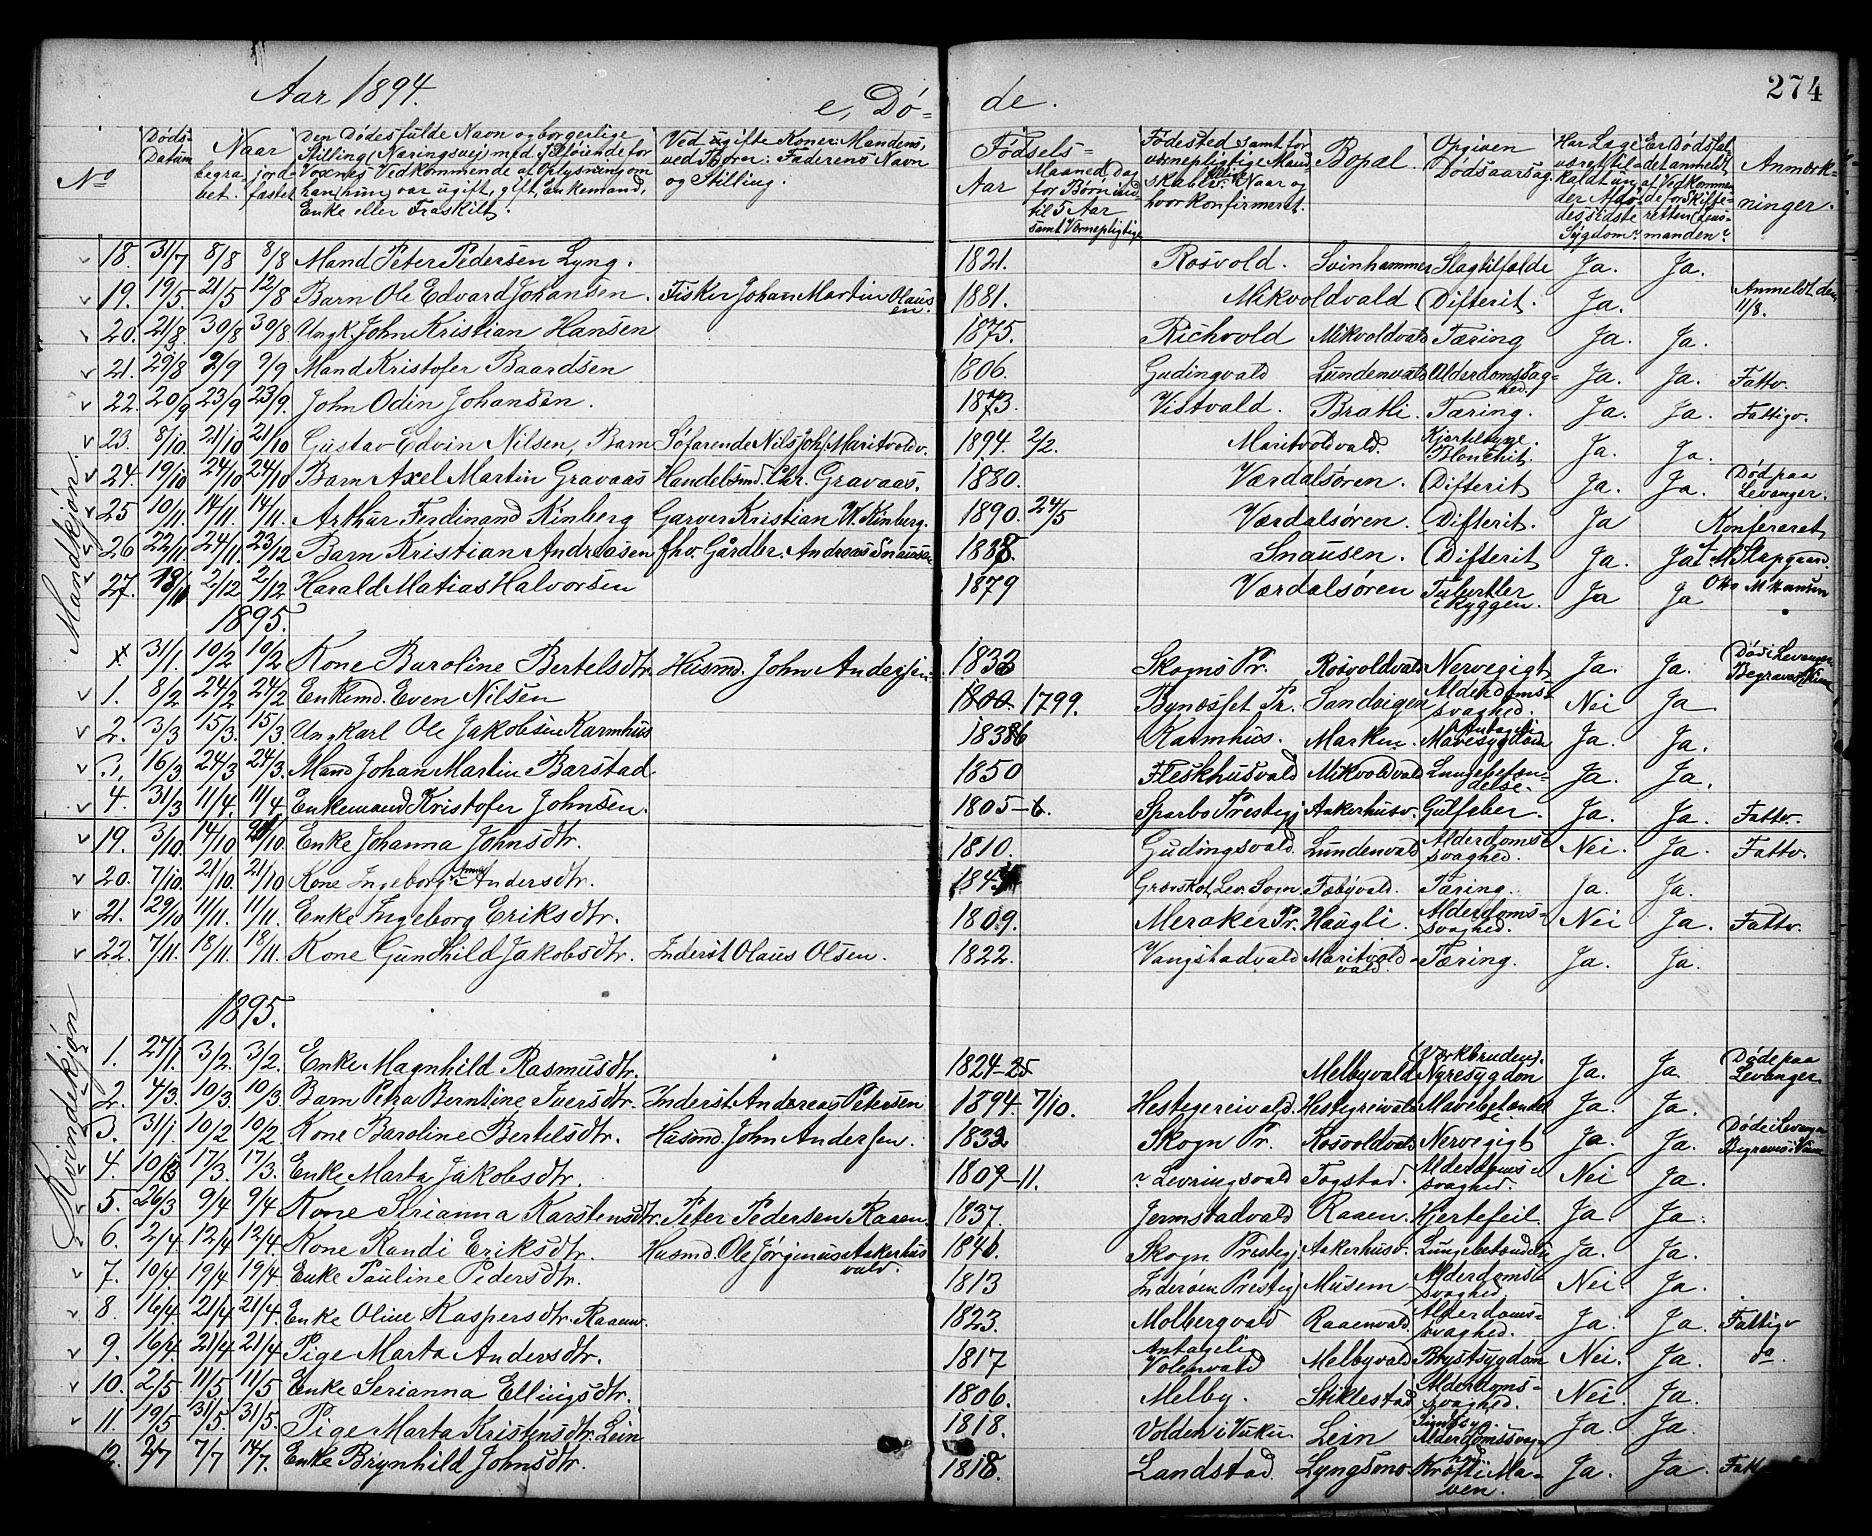 Aar 1894.
e, Dö=
de.
274
No
Døds-
Datum
Naar
begra
bet.
jord
fæstet
Den Dødes fulde Navn og borgerlige
Stilling (Næringsvei) med Tilføiende for
Voxnes Vedkommende af Oplysning om
han, hun, var ugift, gift, Enkemand,
Enke eller Fraskilt.
Ved gifte Koner: Mandens,
ved Børn: Faderens Navn
og Stilling.
Fødsels=
Aar
Maaned, Dag
for Børn ind
til 5 Aar
samt Værnepligtige
Fødested samt for
værnepligtige Mand
skaber: Naar og
hvor konfirmeret.
Bopæl.
Opgiven
Dødsaarsag.
Har Læge
været til-
kaldt un-
der Afdø-
des sidste
Sygdom?
Er Dødsfal
det anmeldt
af Vedkommen
de for Skifte-
retten (Lens-
manden?
Anmærk-
ninger.
Mandkjøn.
18. 31/7 8/8 8/8 Mand Peter Pedersen Lyng. 1821. Rosvold. Svinhammer Slagtilfælde Ja. Ja.
19. 19/5. 21/5 12/8 Barn Ole Edvard Johansen. Fisker Johan Martin Olaus en. 1881. Mikvoldvald Difterit. Ja. Anmeldt den 11/8.
20. 21/8. 30/8 30/8 Ungk. John Kristian Hansen 1875. Richvold Mikvoldvald Tæring Ja. Ja.
21. 29/8 2/9 2/9 Mand Kristofer Baardsen 1806. Gudingvald Lundenvald Alderdomssvag-hed. Ja. Ja. Fattv.
22. 20/9 23/9 23/9. John Odin Johansen. 1873. Vistvald. Bratli. Tæring. Ja. Ja. Fattigv.
23. 8/10. 21/10 21/10 Gustav Edvin Nilsen, Barn Søfarende Nils Joh. Maritvoldv. 1894. 2/2. Maritvoldvald. Kjertelsyge. Blonchit. Ja. Ja.
24. 19/10 24/10 24/10 Barn Axel Martin Gravaas Handelsmd. Chr. Gravaas. 1880. Værdalsøren. Difterit Ja. Ja. Død paa Levanger.
25 10/11. 14/11. 14/11. Arthur Ferdinand Kinberg Garver Kristian W. Kinberg. 1890. 24/5 Værdalsøren. Difterit. Ja Konfereret
26. 22/11. 24/11. 23/12 Barn Kristian Andreasen fhv. Gårdbr. Andreas Snausen 1888. Snausen. Difterit Ja. Ja
27. 18/11 2/12 2/12 Harald Matias Halvorsen 1879 Værdalsøren Tuberkler i Ryggen. Ja Ja
1895.
x. 31/1. 10/2 10/2 Kone Baroline Bertelsdtr. Husmd. John Andersen. 1833 Skogns Pr. Rosvoldvald Nervegigt Ja. Ja. Død i Levanger Begravet i Vinne
1. 8/2 24/2 24/2 Enkemd. Even Nilsen 1800 1799. Bynæsset Pr. Sandvigen Alderdoms-svaghed. Nei Ja
2. 3/3 15/3. 15/3 Ungkarl Ole Jakobsen Karmhus 1836 Karmhus. Marken. Antagelig Mavesygdom Ja. Ja.
3. 16/3 24/3 24/3. Mand Johan Martin Barstad 1850 Fleskhusvald Mikvoldvald Lungebetæn-delse. Ja. Ja.
4. 31/3 11/4. 11/4 Enkemand Kristofer Johnsen. 1805-6. Sparbo Prestegj Aakerhusv. Gulfeber. Ja. Ja. Fattv.
Kvindekjøn
19. 3/10. 14/10 21/10. Enke Johanna Johnsdtr. 1810. Gudingsvald. Lundenvald Alderdoms-svaghed. Nei. Ja. Fattv.
20. 7/10. 21/10. 21/10 Kone Ingeborg Anna Andersdtr. Lev. Sogn Tæring. Ja. Ja.
21. 29/10 11/11. 11/11. Enke Ingeborg Eriksdtr. 1809. Meraker Pr. Haugli. Alderdoms-svaghed. Nei Ja. Fattv.
22. 7/11. 18/11 18/11. Kone Gunhild Jakobsdtr. Inderst Olaus Olsen. 1822. Vangstadvald Maritvold vald. Tæring. Ja. Ja.
1895.
1. 27/1 3/2. 3/2. Enke Magnhild Rasmusdtr. 1824-25 Melbyvald (Værkbruden). Nyresygdom Ja. Ja Døde paa Levanger
2. 4/3. 10/3. 10/3 Barn Petra Berntine Iversdtr. Inderst Andreas Petersen 1894 7/10. Hestegreivald. Hestegreivald Mavebetændel Ja. Ja.
3. 31/1 10/2 10/2 Kone Baroline Bertelsdtr. Husmd. John Andersen. 1833 Skogn Pr. Rosvoldvald Nervegigt Ja. Ja. Døde i Levanger Begraves i Vinne
4. 10/3 17/3. 17/3. Enke Marta Jakobsdtr. 1809-11. ? Levringsvald Togstad. Alderdoms-svaghed. Nei Ja.
5. 26/3 9/4 9/4 Kone Serianna Karstensdtr. Peter Pedersen Raaen. 1837. Jermstadvald Raaen. Hjertefeil. Ja. Ja.
6. 2/4 12/4 12/4. Kone Randi Eriksdtr. Husmd. Ole Jørginus Aakerhus vald. 1846. Skogn Prestegj. Aakerhusv. Lungebetændelse Ja. Ja.
7. 10/4. 19/4 19/4. Enke Pauline Pedersdtr. 1813 Inderøen Prestegj Musem Alderdoms-svaghed Nei Ja.
8. 16/4. 21/4 21/4. Enke Oline Kaspersdtr. Raaenv. 1823. Molbergvald Raaenvald. Alderdoms-svaghed. Ja. Ja. Fattigv
9. 16/4. 21/4 21/4 Pige Marta Andersdtr. 1817 Antagelig Volenvald Melbyvald Brystsygdom Nei. Ja. do.
10. 2/5 11/5 11/5 Enke Serianna Ellingsdtr. 1806. Melby. Stiklestad Alderdoms-svaghed. Nei. Ja.
11. 19/5 31/5. 31/5. Pige Marta Kristensdtr. Lein 1818. Volden i Vuku Lein Alderdomssvag Ja. Ja.
12. 2/7 7/7 14/7. Enke Brynhild Johnsdtr. 1818. Landstad. Lyngsmo Kræft i Ma-ven. Ja. Ja.